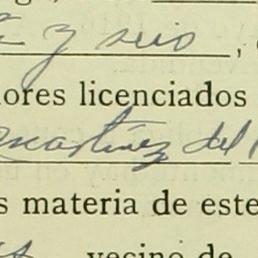 y seis,
ores licenciados
Martínez del
s materia de este
vecino de